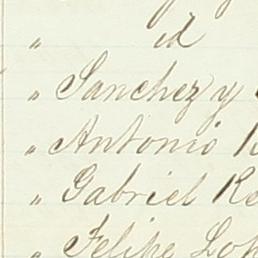 " id
" Sanchez y
" Antonio
" Gabriel
" Felipe